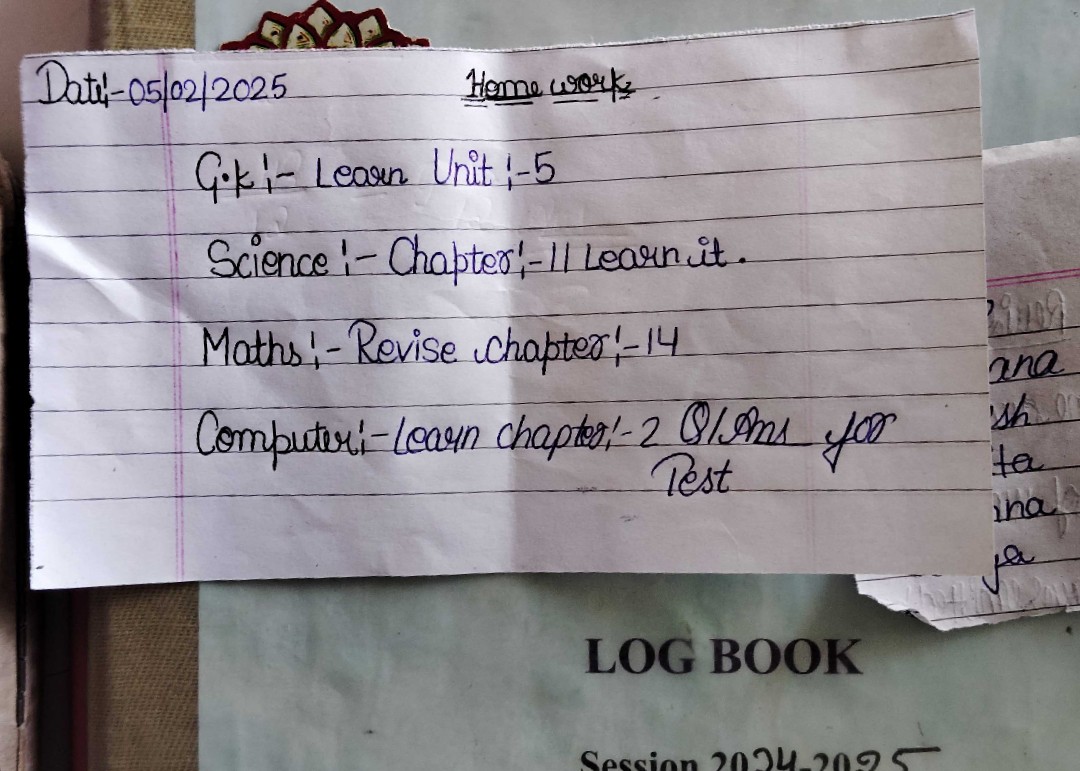 Date:-05/02/2025
Home work
G.k:- Learn Unit:-5
Science:- Chapter:-11 Learn it.
Maths:- Revise chapter:-14
Computer:- Learn chapter:-2 Q/Ans for
Test
ana
sh
ta
ina
ya
LOG BOOK
Session 2024-2025